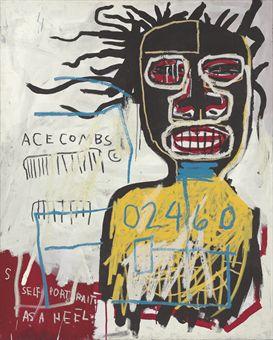 ACE COMBS
©
02460
S
SELF PORTRAIT
AS A HEEL